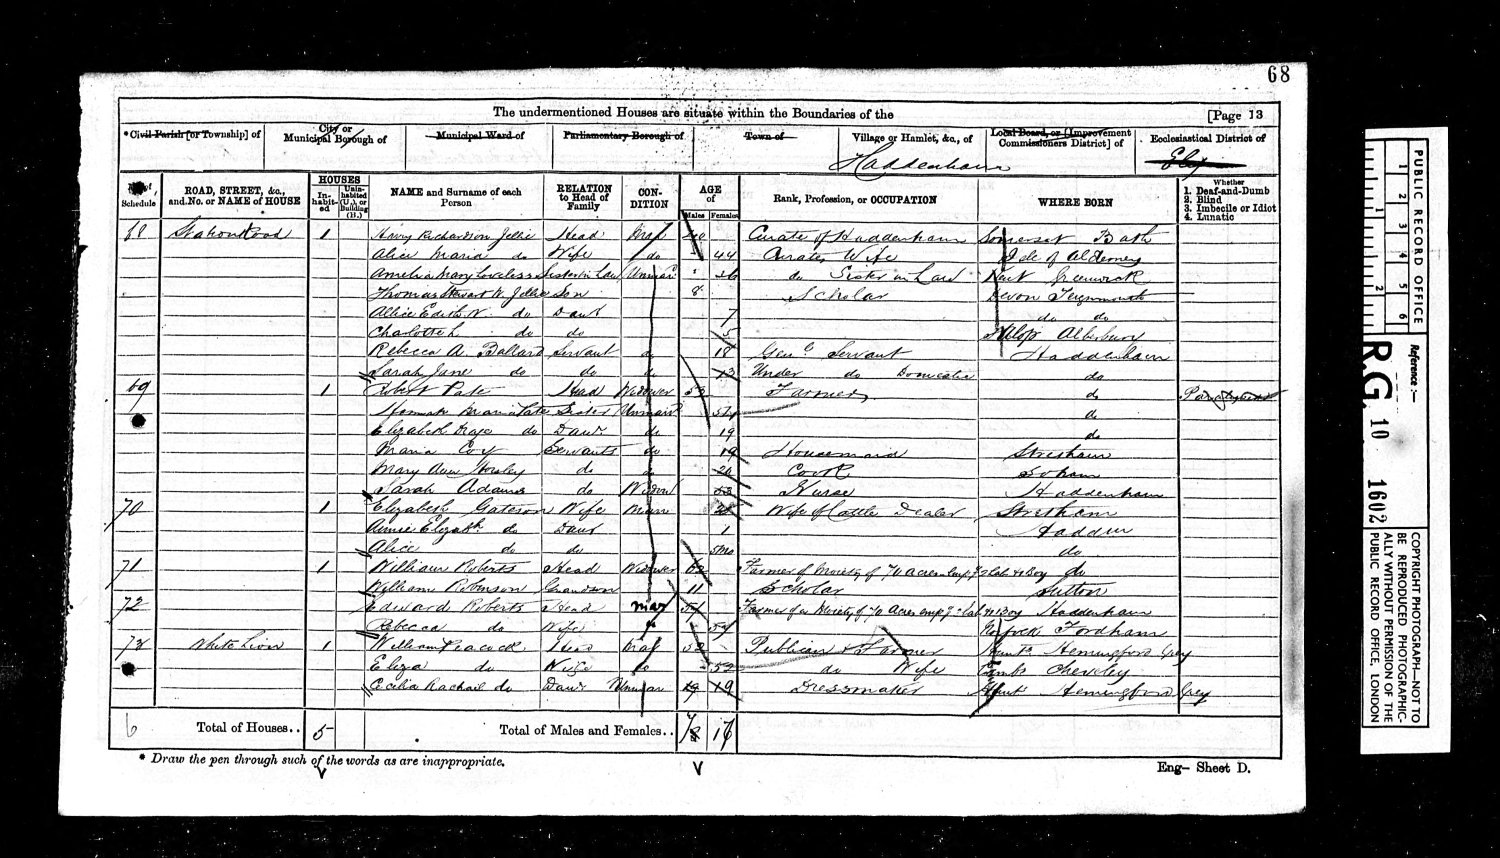 68
The undermentioned Houses are situate within the Boundaries of the [Page 13
* Civil Parish [or Township] of City or Municipal Borough of Municipal Ward of Parliamentary Borough of Town of Village or Hamlet, &c., of Local Board, or [Improvement Commissioners District] of Ecclesiastical District of
Haddenham Ely
Schedule ROAD, STREET, &c., and No. or NAME of HOUSE HOUSES In-habit-ed Unin-habited (U.), or Building (B.) NAME and Surname of each Person RELATION to Head of Family CON-DITION AGE of Males Females Rank, Profession, or OCCUPATION WHERE BORN Whether 1. Deaf-and-Dumb 2. Blind 3. Imbecile or Idiot 4. Lunatic
68 Station Road 1 Harry Richardson Jellie Head Mar 40 Curate of Haddenham Somerset Bath
Alice Maria do Wife do 44 Curates Wife Isle of Alderney
Amelia Mary Loveless Sister in Law Unmar 36 do Sister in Law Kent Greenwich
Thomas Stewart W. Jellie Son 8 Scholar Devon Teignmouth
Allice Edith N. do Daur 7 do do
Charlotte L do do 5 Salop Alberbury
Rebecca A. Ballard Servant do 18 Genl Servant Haddenham
Sarah Jane do do do 13 Under do Domestic do
69 1 Robert Pate Head Widower 53 Farmer do
Hannah Maria Pate Sister Unmar 54 do
Elizabeth do Daur do 19 do
Maria Coy Servants do 19 Housemaid Stretham
Mary Ann do do 20 Cook Soham
Sarah Adams do Widow 53 Nurse Haddenham
70 1 Elizabeth Gateson Wife Marr Wife of Cattle Dealer Stretham
Annie Elizabh. do Daur 1 Hadden
Alice do do 5mo do
71 1 William Roberts Head Widower 62 Farmer of Moiety of 70 acres empg 2 lab & 1 Boy do
William Robinson Grandson 11 Scholar Sutton
72 Edward Roberts Head mar 51 Farmer of a Moiety of 70 Acres empg 2 lab & 1 Boy Haddenham
Rebecca do Wife do 54 Norfock Fordham
73 White Lion 1 William Peacock Head Mar 52 Publican & Farmer Hunts Hemingford Grey
Eliza do Wife do 52 do Wife Camb Cheveley
Cecilia Rachail do Daur Unmar 19 19 Dressmaker Hunts Hemingford Grey
6 Total of Houses.. 5 Total of Males and Females.. 7 17
* Draw the pen through such of the words as are inappropriate.
Eng— Sheet D.
PUBLIC RECORD OFFICE
1 2 3 4 5 6
1 2
Reference :—
R.G. 10 1602
COPYRIGHT PHOTOGRAPH—NOT TO BE REPRODUCED PHOTOGRAPHIC-ALLY WITHOUT PERMISSION OF THE PUBLIC RECORD OFFICE, LONDON